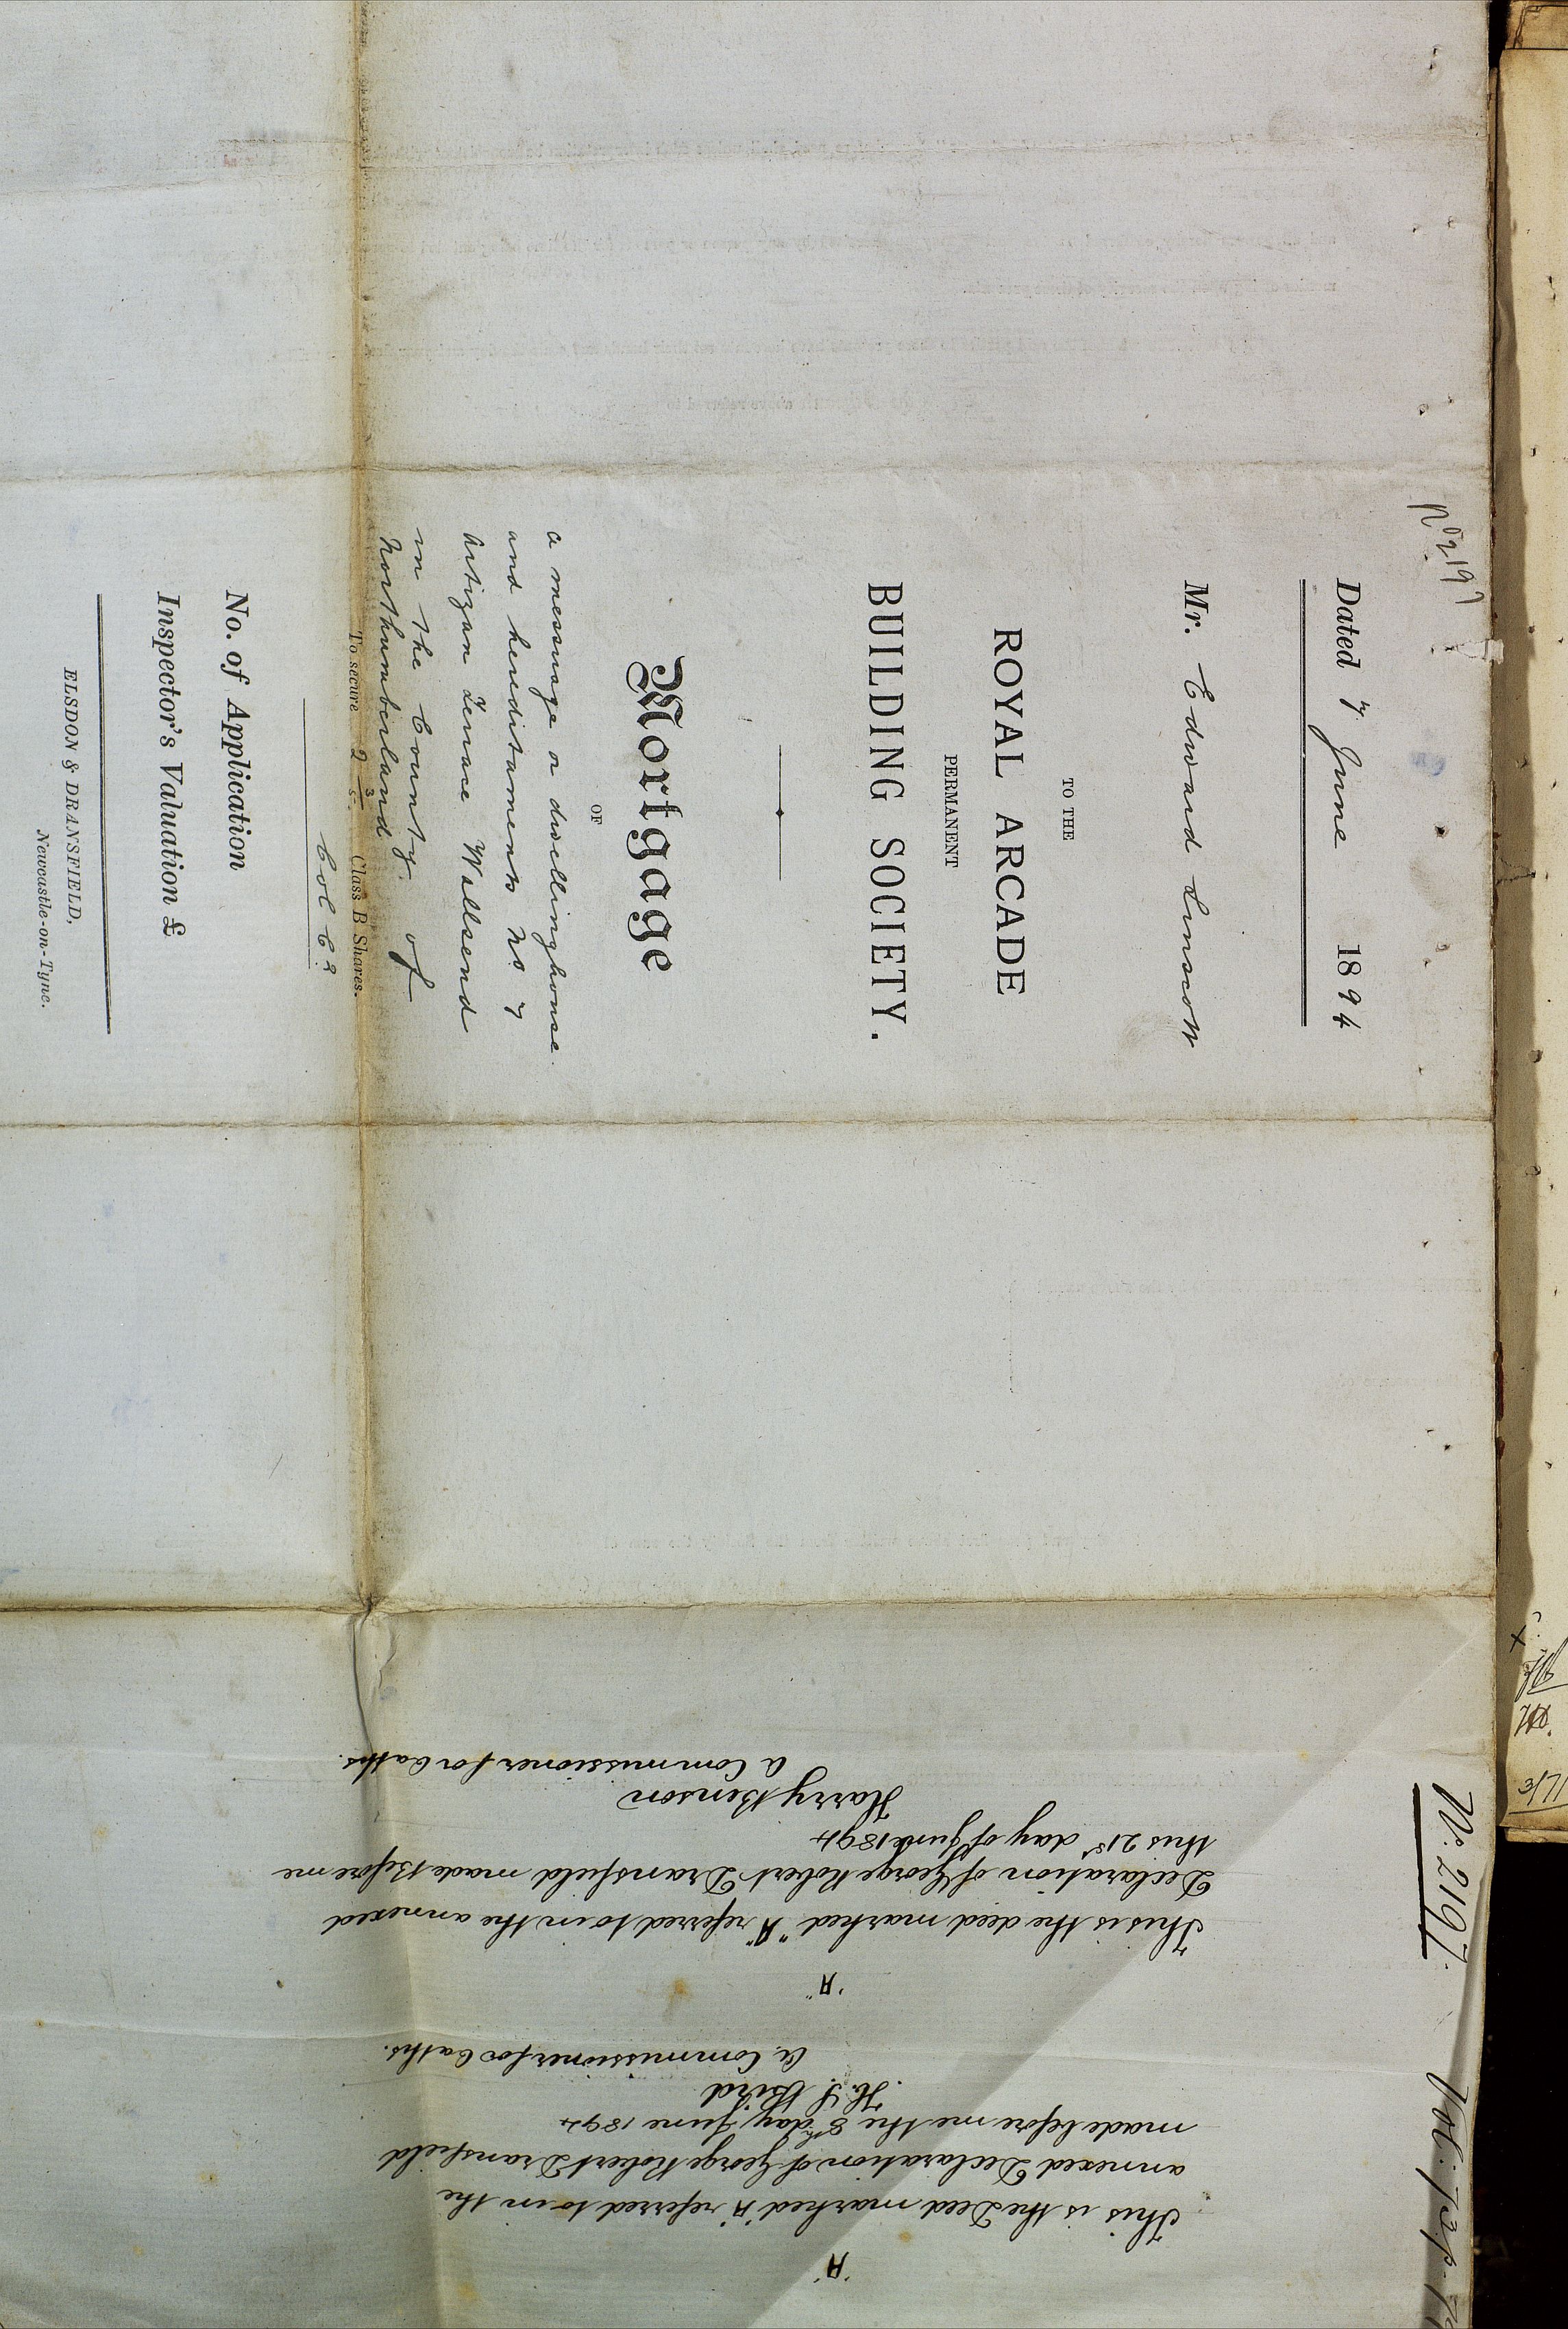 No 2197
Dated 7 June 1894
Mr. Edward Simson
TO THE
ROYAL ARCADE
PERMANENT
BUILDING SOCIETY.
Mortgage
OF
a messuage or dwellinghouse
and hereditaments No 7
Artizan Terrace Wallsend
in the County of
Northumberland
To secure 2 3/5 Class B Shares.
Col C
No. of Application
Inspector's Valuation £
ELSDON & DRANSFIELD,
Newcastle-on-Tyne.
"A"
This is the Deed marked "A" referred to in the
annexed Declaration of George Robert Dransfield
made before me the 8th day June 1894
H. S. Bird
A Commissioner for Oaths.
"A"
This is the deed marked "A" referred to in the annexed
Declaration of George Robert Dransfield made Before me
this 21st day of June 1894
Harry Benson
A Commissioner for Oaths.
No. 2197.
Vol. 73 p.